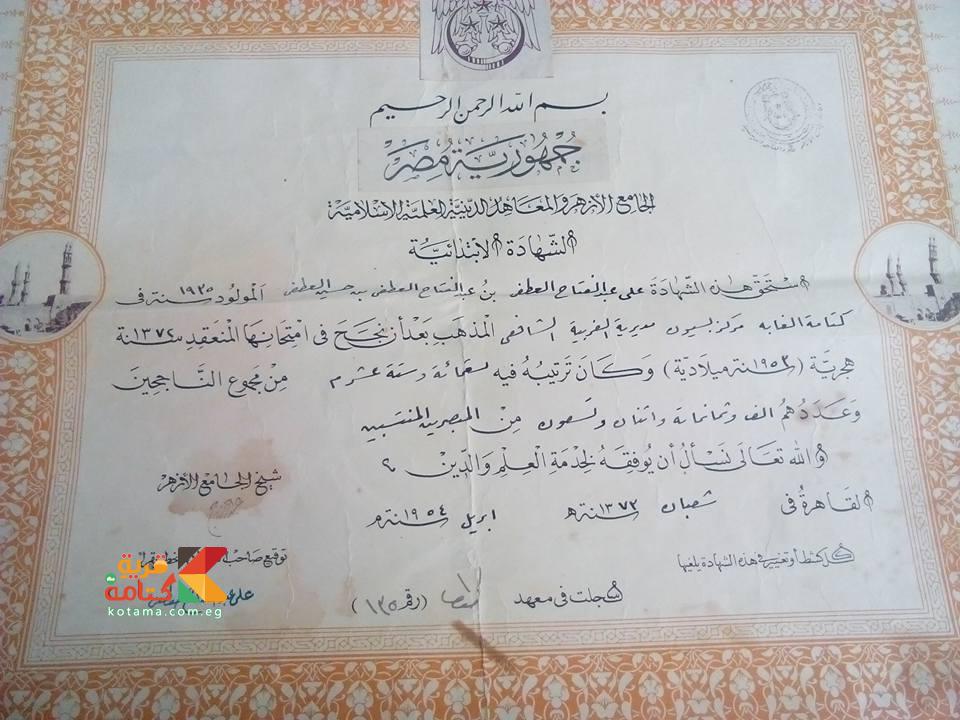 بسم الله الرحمن الرحيم
جُمْهُورِيَّة مُصِرْ
الجامع الأزهر والمعاهد الدينية العلمية الإسلامية
الشهادة الابتدائية
استحق هذه الشهادة على عبد الفتاح العطفى بن عبد الفتاح العطفى بن حسن العطفى المولود سنة ١٩٣٥ فى
كتامة الغابه مركز بسيون مديرية الغربية الشافعى المذهب بعد أن نجح فى امتحانها المنعقد سنة ١٣٧٢
هجرية (سنة ١٩٥٣ ميلادية) وكان ترتيبه فيه وستة عشر م من مجموع الناجحين
وعددهم الف وثمانمائة واثنان وتسعون من المصريين المنتسبين
والله تعالى نسأل أن يوفقه لخدمة العلم والدين
شيخ الجامع الأزهر
القاهرة فى شعبان سنة ١٣٧٣ هـ ابريل سنة ١٩٥٤ م
كل كشط أو تغيير فى هذه الشهادة يلغيها
توقيع صاحب
سجلت فى معهد طنطا (رقم ١٣٥)
على
قرية كتامة
kotama.com.eg